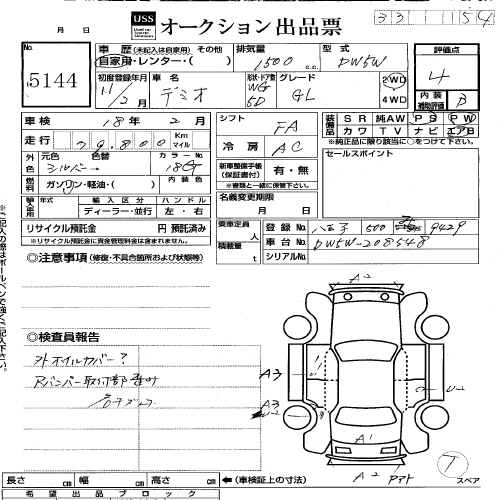 331154
月 日
USS オークション出品票
No. 5144
車歴 (未記入は自家用) その他
自家用・レンター・( )
排気量 1500 c.c.
型式 DW5W
評価点 4
初度登録年月 11/2
車名 デミオ
形状・ドア数 WG 5D
グレード GL
2WD
4WD
内装補助評価 B
車検 18年 2月
シフト FA
装備品 SR 純AW PS PW
カワ TV ナビ エアB
*純正品に限り該当に○をつけて下さい。
走行 79,800 Km マイル
冷房 AC
セールスポイント
外色 元色 シルバー 色替
カラーNo. 18G
新車整備手帳 (保証書付) 有・無
*書類と一緒に保管下さい。
燃料 ガソリン・軽油・( )
内装色
名義変更期限
月 日
輸入車用 輸入区分 ハンドル
ディーラー・並行 左・右
リサイクル預託金 円 預託済み
※リサイクル預託金に資金管理料金は含まれておりません。
乗車定員 人
積載量 t
登録No. 八王子 500 9429
車台No. DW5W-208548
シリアルNo.
◎注意事項 (修復・不具合箇所および状態等)
◎検査員報告
外ホイルカバー?
Rバンパー取付部
A2
A3
A3
U-2
U-2
A1
A2
T
スペア
長さ cm 幅 cm 高さ cm ←(車検証上の寸法)
希望出品ブロック
*ご記入の際はボールペンで強くご記入下さい。